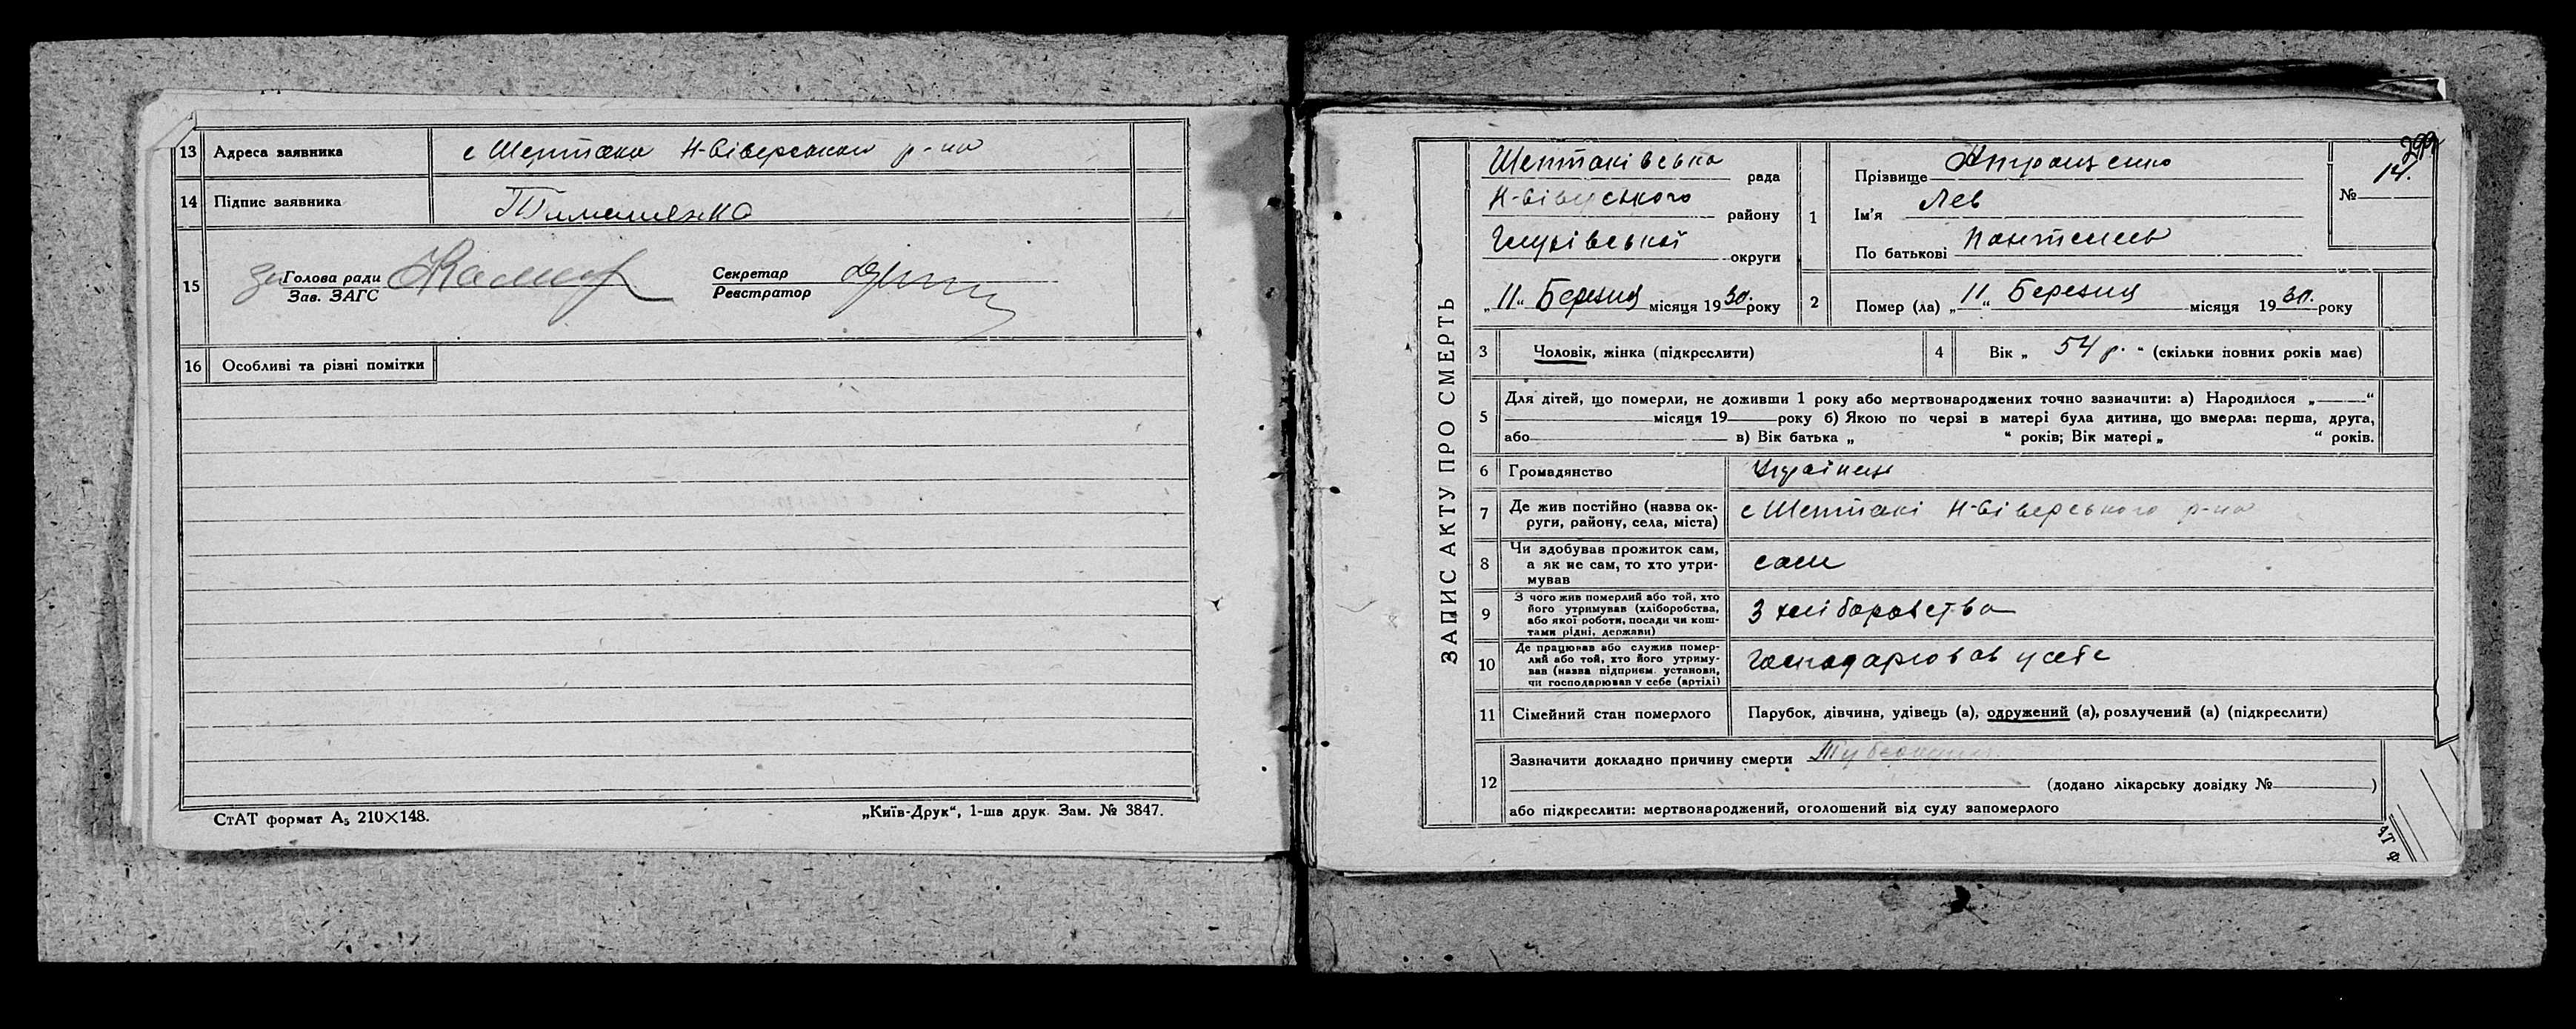 13 Адреса заявника с Шептаки Н-Сіверського р-на
14 Підпис заявника Тимошенко
15 Голова ради
Зав. ЗАГС
Секретар
Реєстратор
16 Особливі та різні помітки
СтАТ формат А₅ 210×148.
„Київ-Друк“, 1-ша друк. Зам. № 3847.
ЗАПИС АКТУ ПРО СМЕРТЬ
299
Шептаківська рада
Н-Сіверського району
Глухівської округи
„11“ Березня місяця 1930. року
1 Прізвище
Ім'я Лев
По батькові
№ 14.
2 Помер (ла) „11“ Березня місяця 1930. року
3 Чоловік, жінка (підкреслити)
4 Вік „ 54 р. “ (скільки повних років має)
5 Для дітей, що померли, не доживши 1 року або мертвонароджених точно зазначити: а) Народилося „ “
місяця 19 року б) Якою по черзі в матері була дитина, що вмерла: перша, друга,
або в) Вік батька „ “ років; Вік матері „ “ років.
6 Громадянство Українец
7 Де жив постійно (назва округи, району, села, міста) с Шептакі Н-Сіверського р-на
8 Чи здобував прожиток сам,
а як не сам, то хто утри-
мував
сам
9 З чого жив померлий або той, хто
його утримував (хліборобства,
або якої роботи, посади чи кош-
тами рідні, держави)
З хліборобства
10 Де працював або служив помер-
лий або той, хто його утриму-
вав (назва підприєм. установи,
чи господарював у себе (артілі)
господарював у себе
11 Сімейний стан померлого Парубок, дівчина, удівець (а), одружений (а), розлучений (а) (підкреслити)
12 Зазначити докладно причину смерти
(додано лікарську довідку № )
або підкреслити: мертвонароджений, оголошений від суду запомерлого